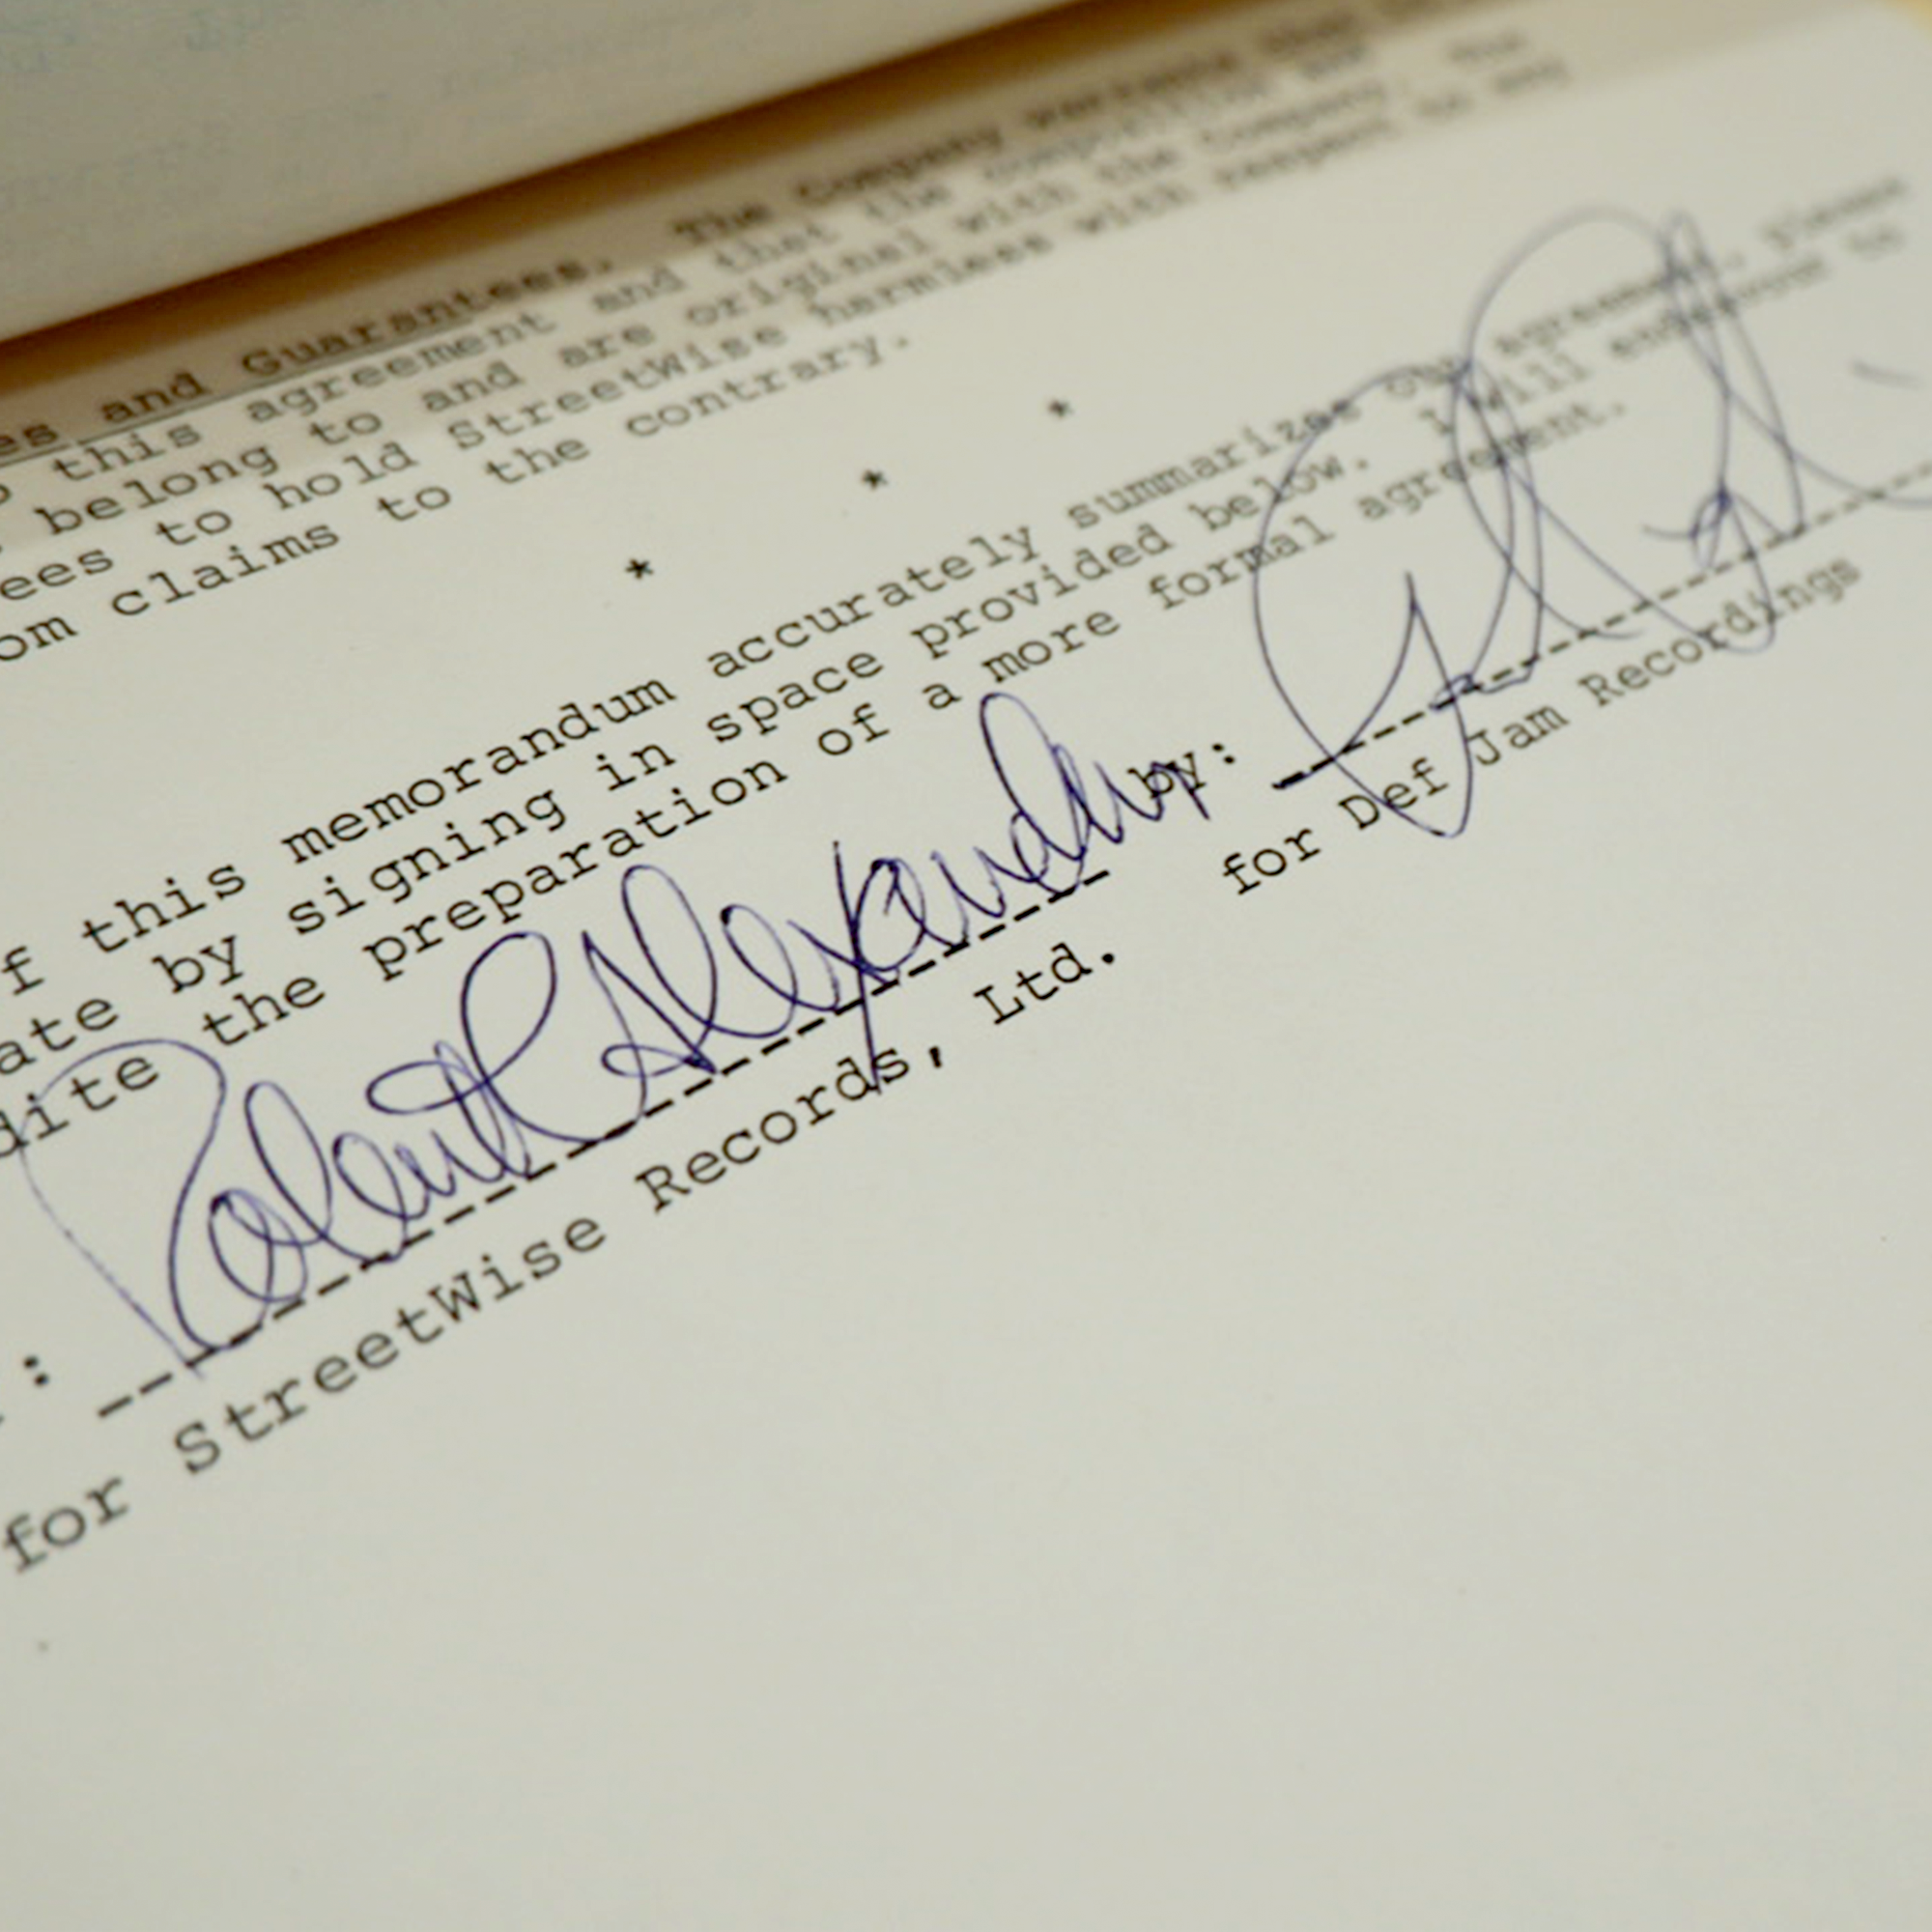 es and Guarantees. The Company warrants that
this agreement and that the composition and
belong to and are original with the Company. The
ees to hold StreetWise harmless with respect to any
om claims to the contrary.
* * *
f this memorandum accurately summarizes our agreement, please
ate by signing in space provided below. I will endeavour to
dite the preparation of a more formal agreement.
: Robert Alexander by:
for StreetWise Records, Ltd. for Def Jam Recordings